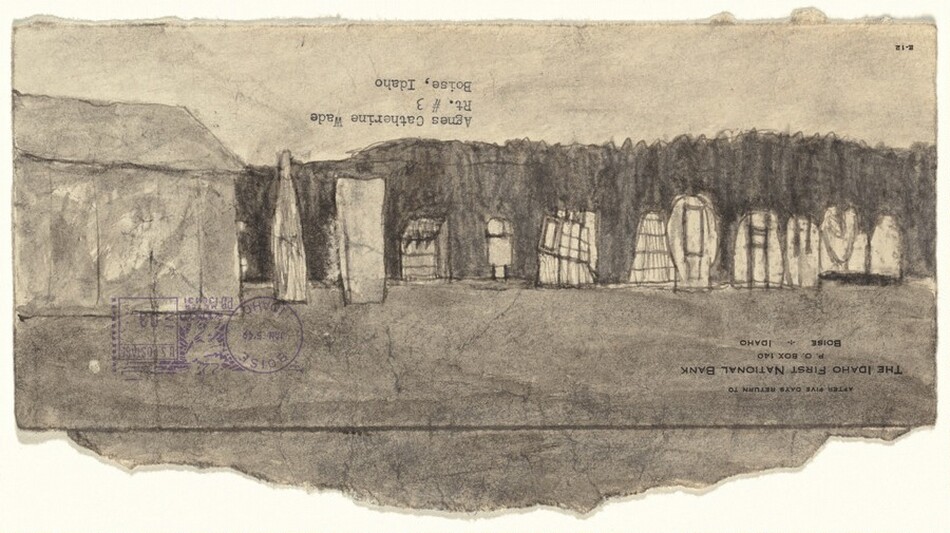 Agnes Catherine Wade
Rt. # 3
Boise, Idaho
AFTER FIVE DAYS RETURN TO
THE IDAHO FIRST NATIONAL BANK
P. O. BOX 140
BOISE ÷ IDAHO
BOISE
IDAHO